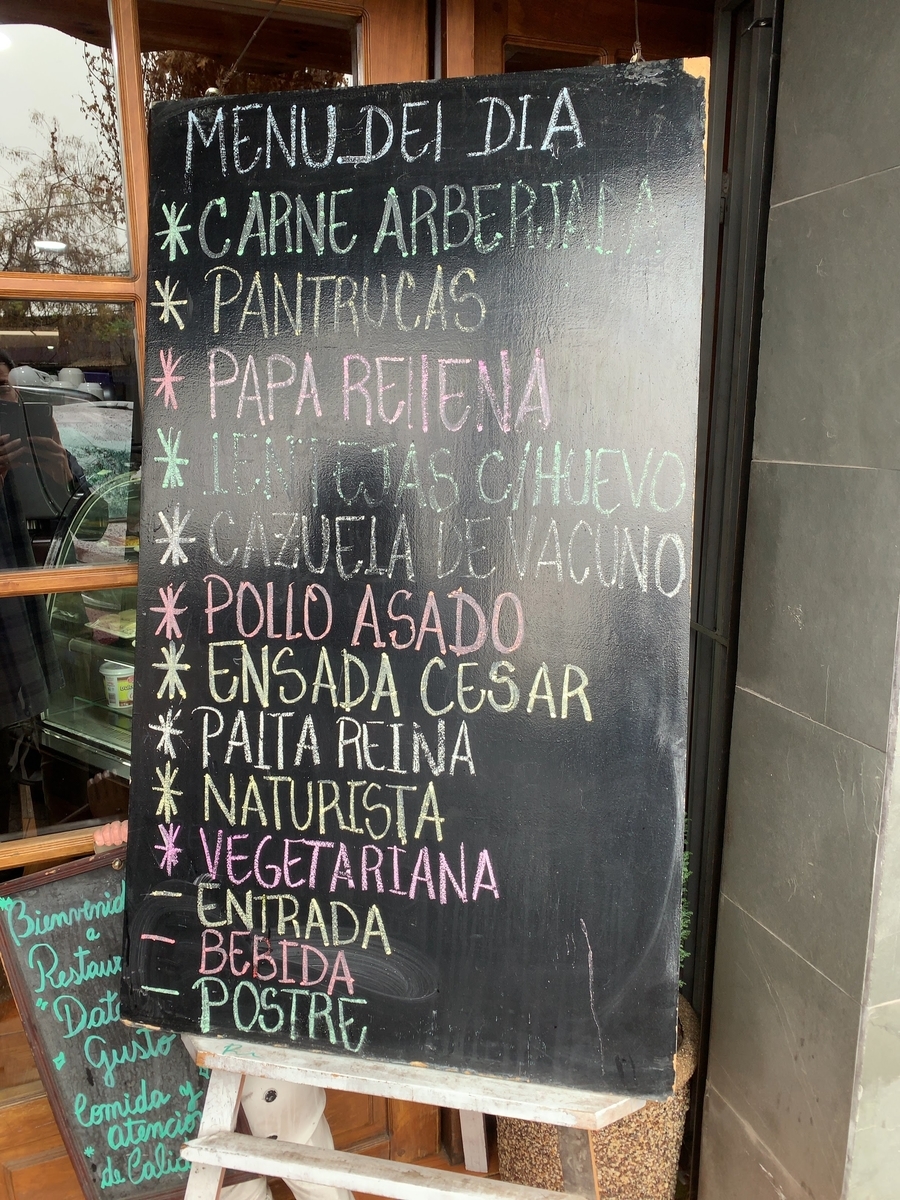 MENU DEl DIA
* CARNE ARBERJADA
* PANTRUCAS
* PAPA REllENA
* lENTEJAS C/HUEVO
* CAZUElA DE VACUNO
* POLLO ASADO
* ENSADA CESAR
* PAlTA REINA
* NATURISTA
* VEGETARIANA
- ENTRADA
- BEBIDA
- POSTRE
"Bienvenid
a
Restau
"Dat
Gusto
Comida y
atención
* de Calid